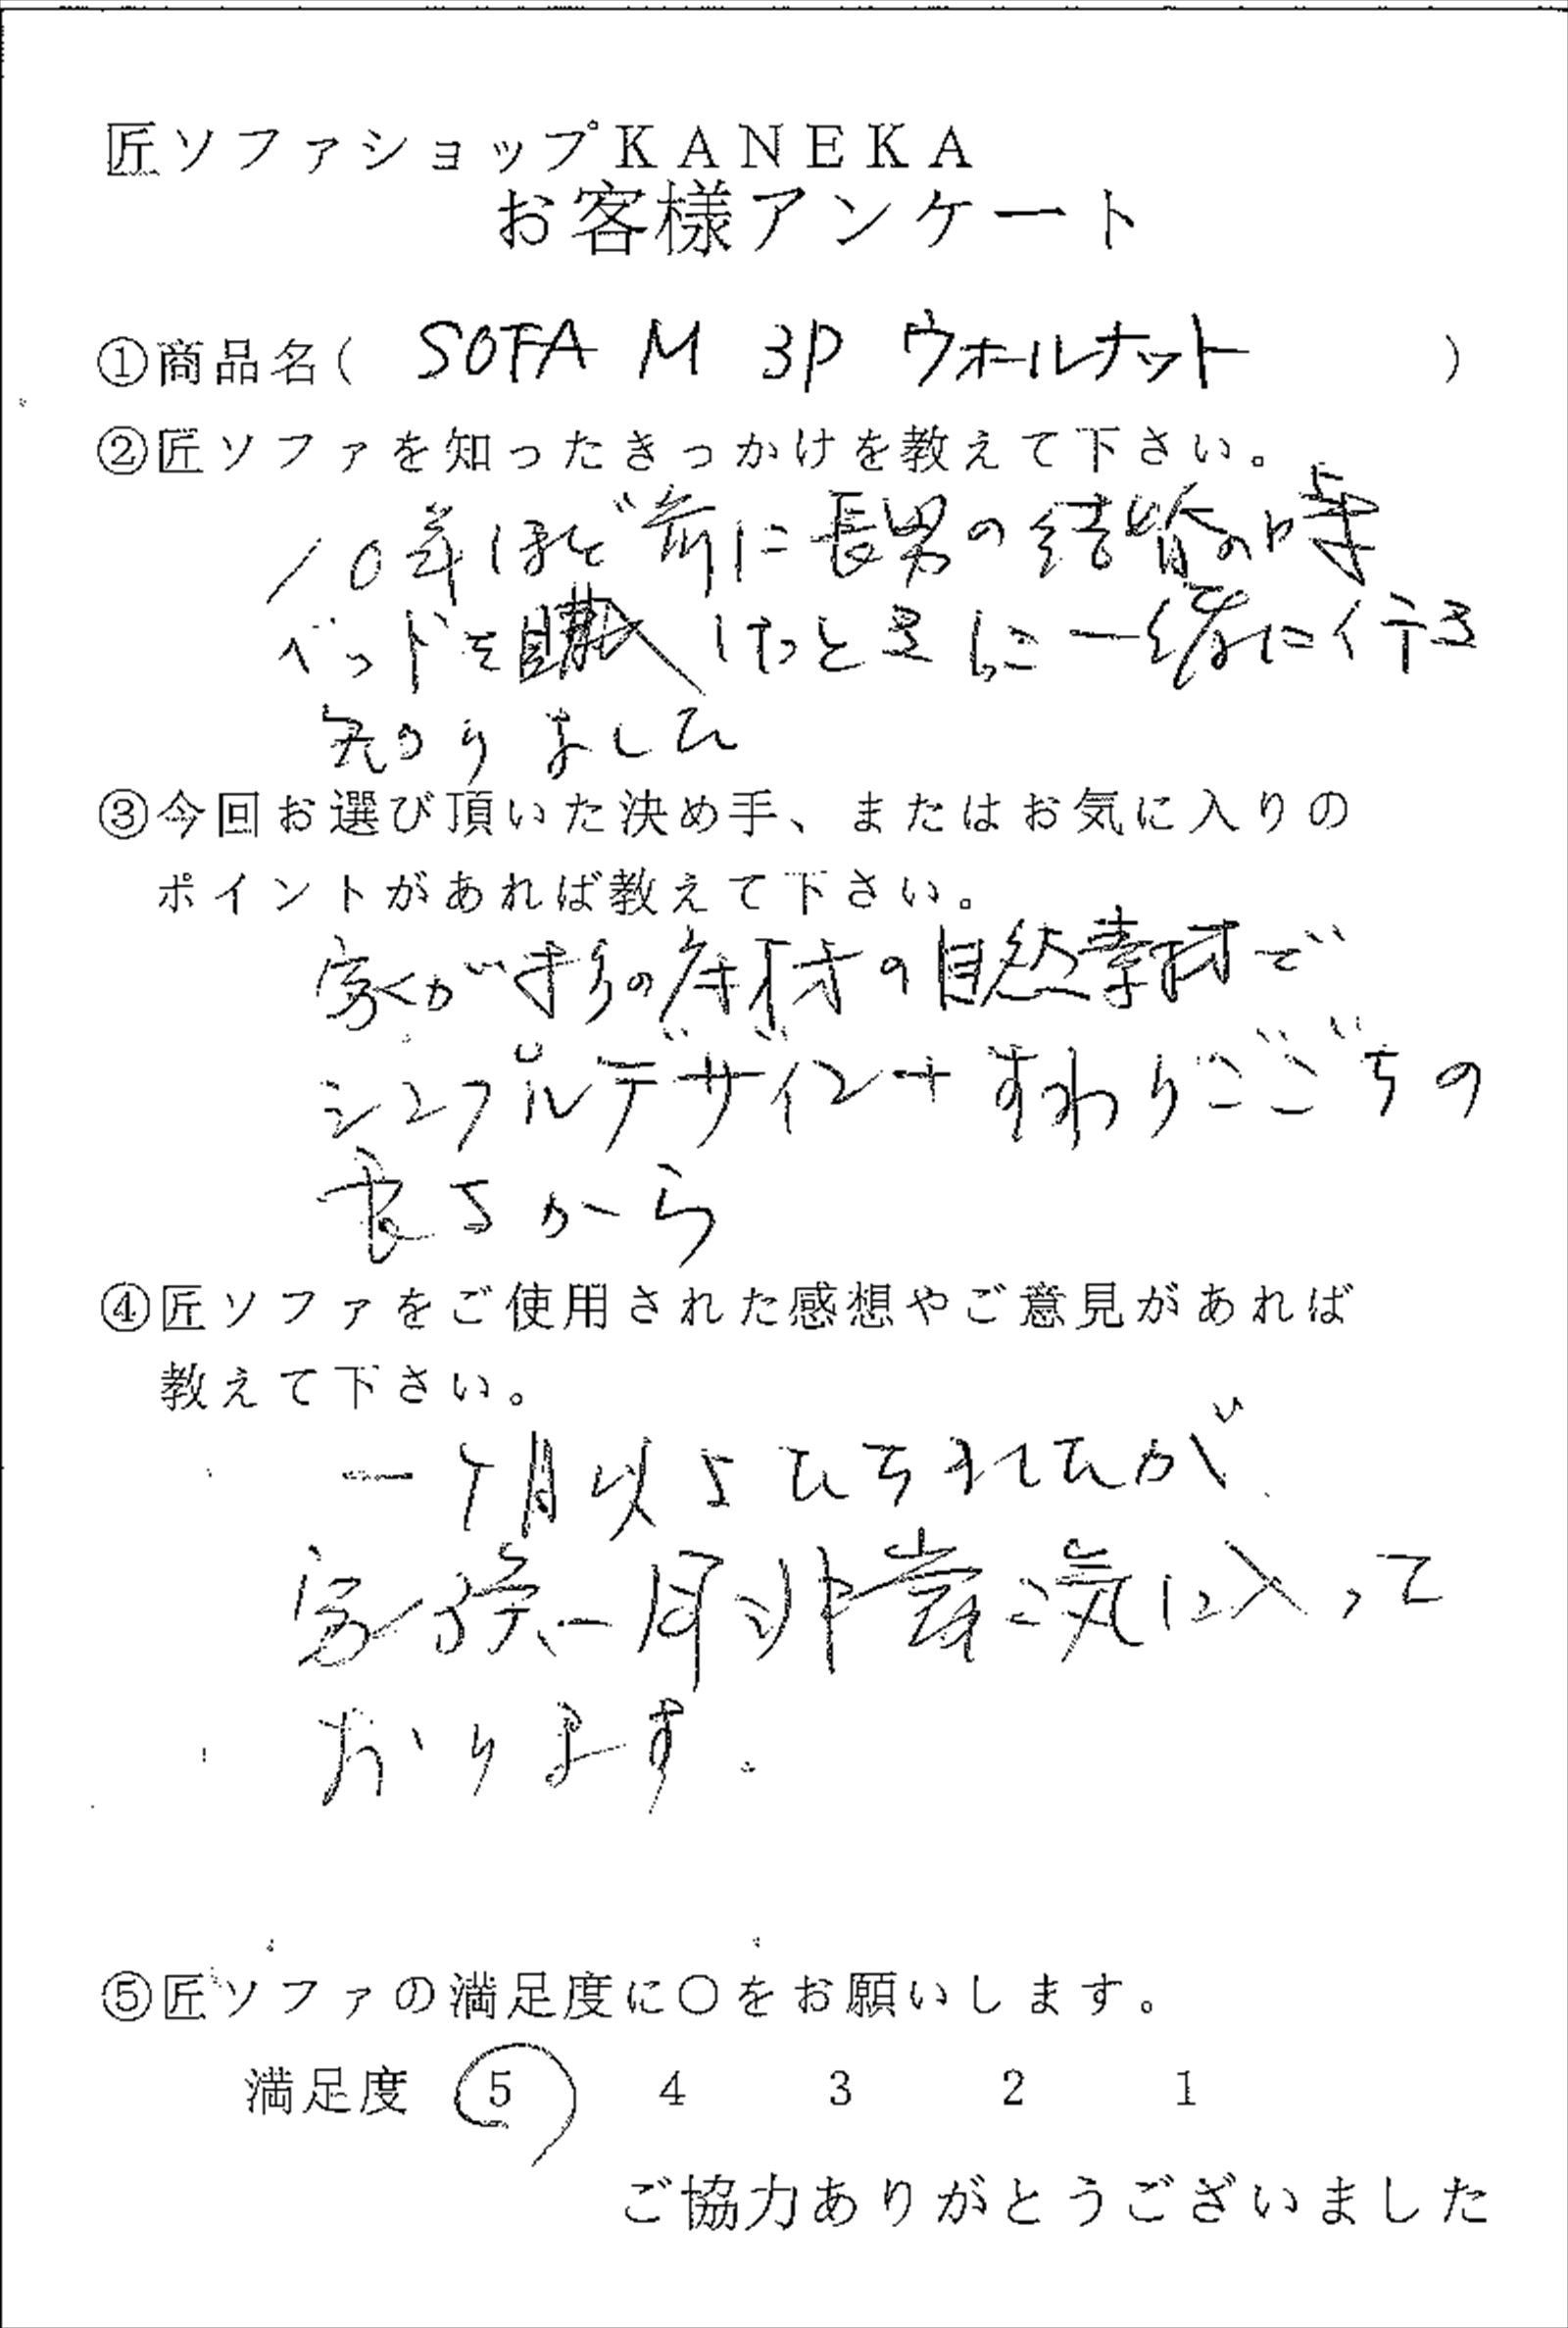 匠ソファショップKANEKA
お客様アンケート
①商品名( SOFA M 3P ウォールナット )
②匠ソファを知ったきっかけを教えて下さい。
10年ほど前に長男の結婚の時
ベッドを購入したときに一緒に行き
知りました
③今回お選び頂いた決め手、またはお気に入りの
ポイントがあれば教えて下さい。
家が杉の床材の自然素材で
シンプルデザイン+すわりごごちの
良さから
④匠ソファをご使用された感想やご意見があれば
教えて下さい。
一ケ月以上たちましたが
家族一同非常に気に入って
おります.
⑤匠ソファの満足度に○をお願いします。
満足度 5 4 3 2 1
ご協力ありがとうございました